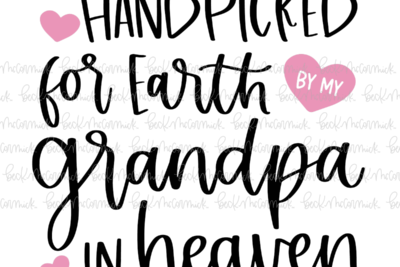 HANDPICKED
for Earth BY MY
grandpa
IN heaven